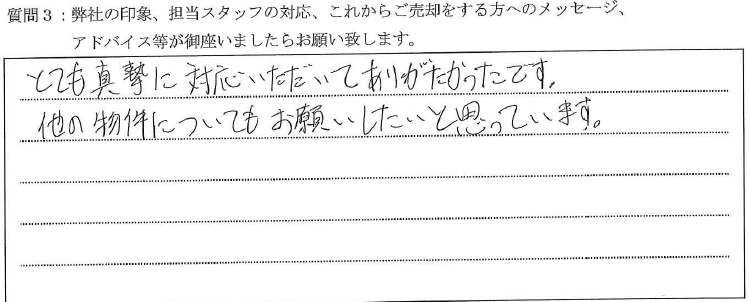 質問３：弊社の印象、担当スタッフの対応、これからご売却をする方へのメッセージ、
アドバイス等が御座いましたらお願い致します。
とても真摯に対応いただいてありがたかったです。
他の物件についてもお願いしたいと思っています。